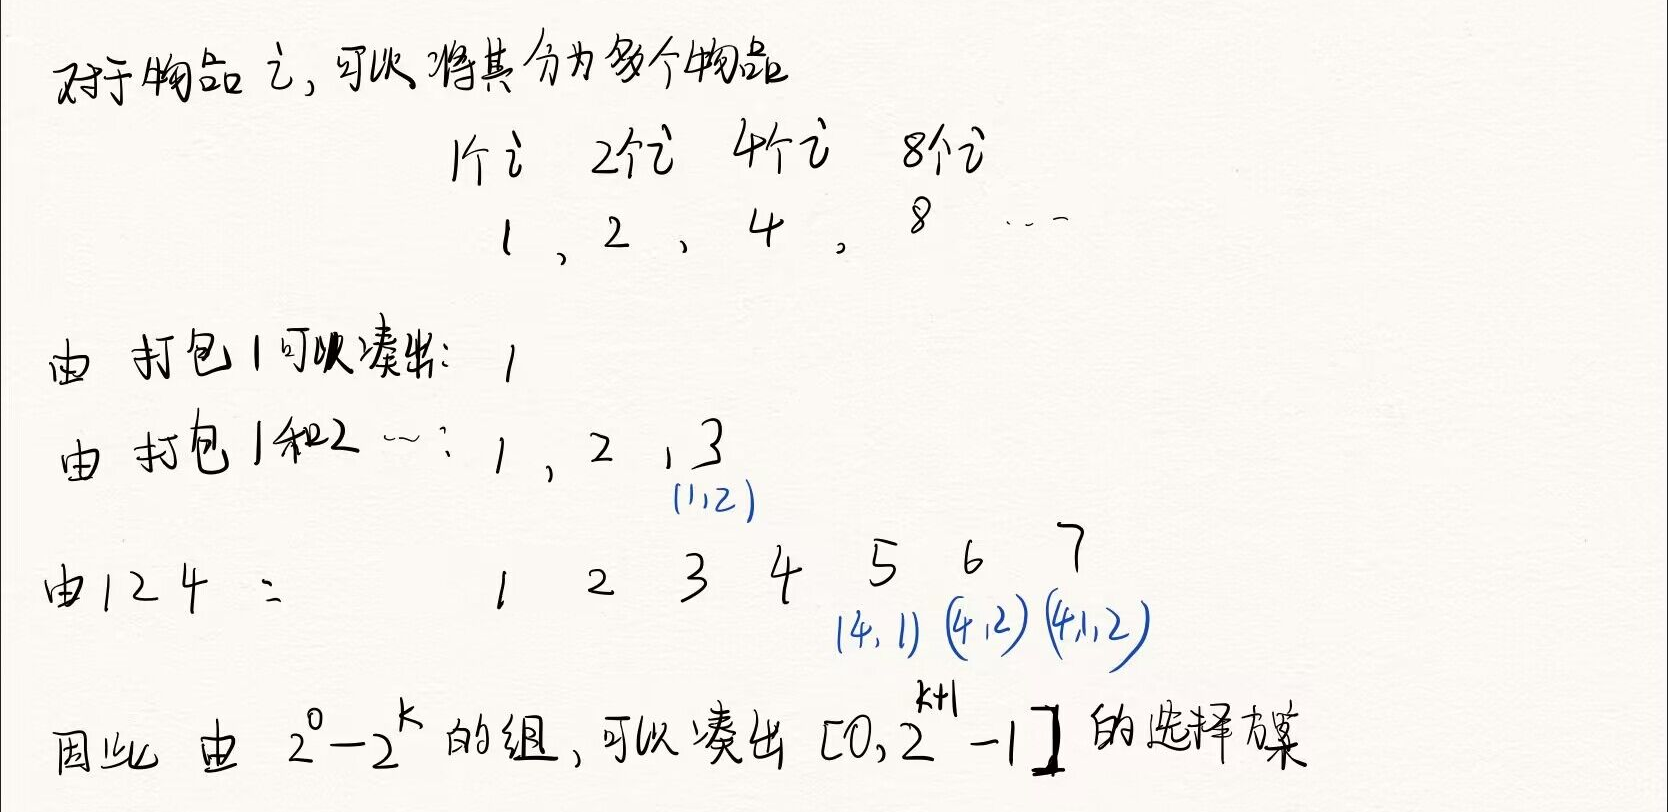 对于物品 i, 可以将其分为多个物品
1个i 2个i 4个i 8个i
1 , 2 , 4 , 8 ...
由 打包1可以凑出: 1
由 打包1和2 ...: 1 , 2 , 3
(1,2)
由124 : 1 2 3 4 5 6 7
(4,1) (4,2) (4,1,2)
因此 由 2⁰-2ᵏ 的组, 可以凑出 [0, 2ᵏ⁺¹-1] 的选择方案